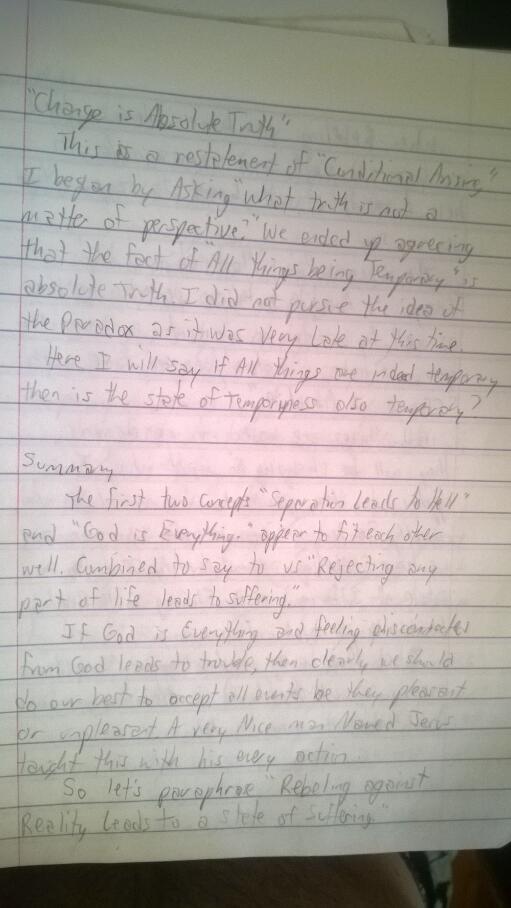 "Change is Absolute Truth"
This is a restatement of "Conditional Arising"
I began by Asking "what truth is not a
matter of perspective?" We ended up agreeing
that the fact of "All things being Temporary" is
absolute Truth. I did not pursue the idea of
the Paradox as it was very late at this time.
Here I will say if All things are indeed temporary
then is the state of Temporyness also temporary?
Summary
The first two concepts "Seperation Leads to Hell"
and "God is Everything." appear to fit each other
well. Combined to say to us "Rejecting any
part of life leads to suffering."
If God is Everything and feeling disconnected
from God leads to trouble, then clearly we should
do our best to accept all events be they pleasant
or unpleasant A very Nice man Named Jesus
taught this with his every action.
So let's paraphrase "Rebeling against
Reality Leads to a state of Suffering."